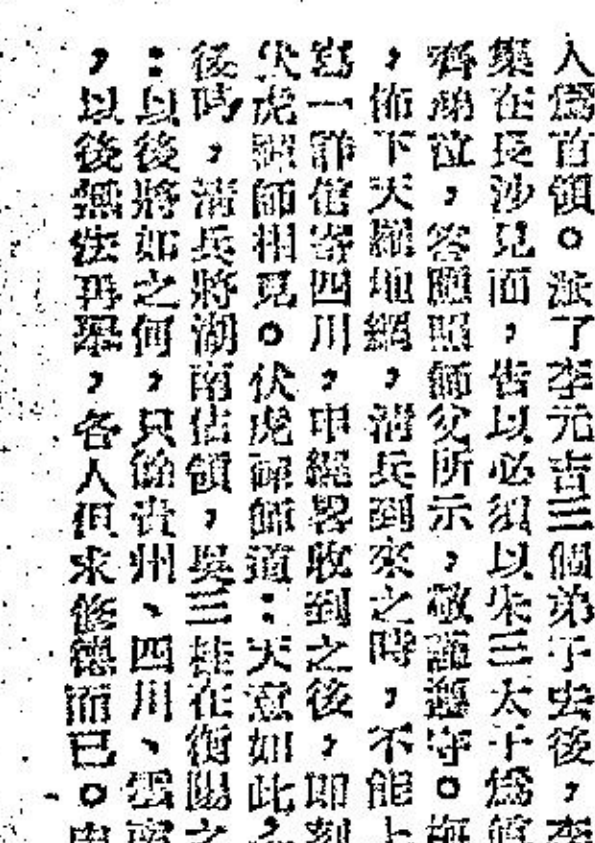 入爲首領。派了李元吉三個弟子去後，李
集在長沙見面，告以必須以朱三太子爲
齊就位，答應照師父所示，敬謹遵守。
，佈下天羅地網，清兵到來之時，不能上
寫一詳信寄四川，申繩畧收到之後，即刻
伏虎禪師相見。伏虎禪師道：天意如此，
後時，清兵將湖南佔領，吳三桂在衡陽之
：以後將如之何，只餘貴州、四川、雲南
，以後無法再舉，各人但求修德而已。